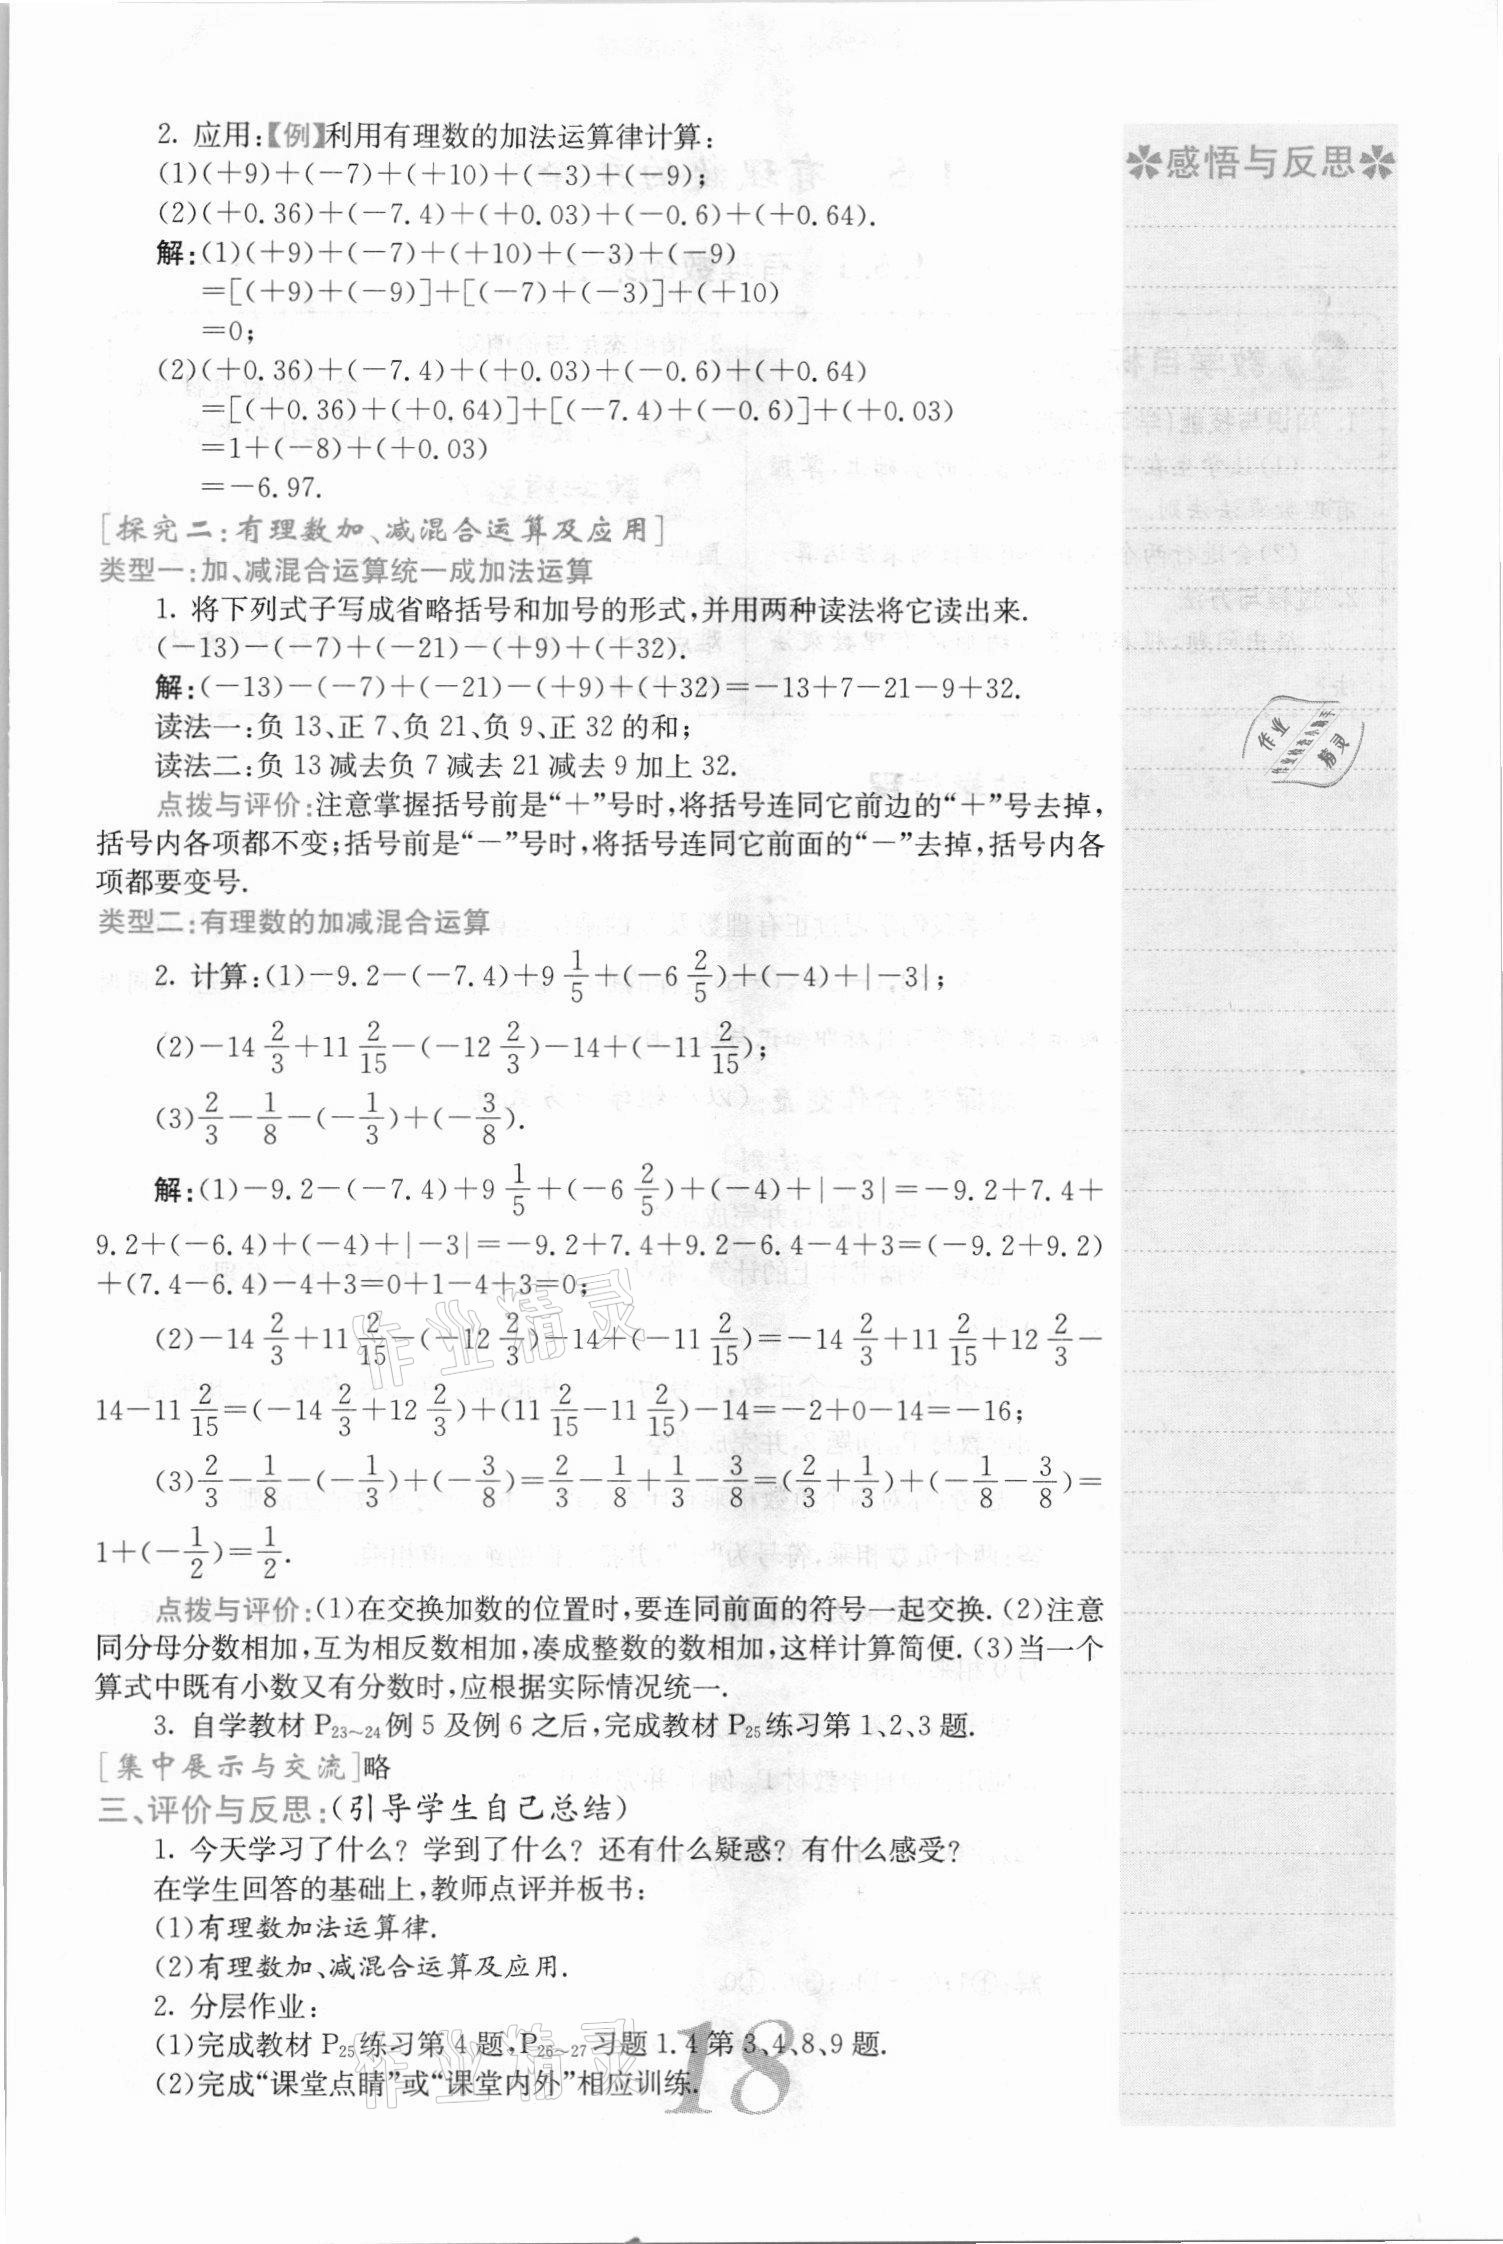 2. 应用:【例】利用有理数的加法运算律计算:
(1)(+9)+(-7)+(+10)+(-3)+(-9);
(2)(+0.36)+(-7.4)+(+0.03)+(-0.6)+(+0.64).
解:(1)(+9)+(-7)+(+10)+(-3)+(-9)
=[(+9)+(-9)]+[(-7)+(-3)]+(+10)
=0;
(2)(+0.36)+(-7.4)+(+0.03)+(-0.6)+(+0.64)
=[(+0.36)+(+0.64)]+[(-7.4)+(-0.6)]+(+0.03)
=1+(-8)+(+0.03)
=-6.97.
[探究二:有理数加、减混合运算及应用]
类型一:加、减混合运算统一成加法运算
1. 将下列式子写成省略括号和加号的形式,并用两种读法将它读出来.
(-13)-(-7)+(-21)-(+9)+(+32).
解:(-13)-(-7)+(-21)-(+9)+(+32)=-13+7-21-9+32.
读法一:负 13、正 7、负 21、负 9、正 32 的和;
读法二:负 13 减去负 7 减去 21 减去 9 加上 32.
点拨与评价:注意掌握括号前是“+”号时,将括号连同它前边的“+”号去掉,
括号内各项都不变;括号前是“-”号时,将括号连同它前面的“-”去掉,括号内各
项都要变号.
类型二:有理数的加减混合运算
2. 计算:(1)-9.2-(-7.4)+9 1/5+(-6 2/5)+(-4)+|-3|;
(2)-14 2/3+11 2/15-(-12 2/3)-14+(-11 2/15);
(3)2/3-1/8-(-1/3)+(-3/8).
解:(1)-9.2-(-7.4)+9 1/5+(-6 2/5)+(-4)+|-3|=-9.2+7.4+
9.2+(-6.4)+(-4)+|-3|=-9.2+7.4+9.2-6.4-4+3=(-9.2+9.2)
+(7.4-6.4)-4+3=0+1-4+3=0;
(2)-14 2/3+11 2/15-(-12 2/3)-14+(-11 2/15)=-14 2/3+11 2/15+12 2/3-
14-11 2/15=(-14 2/3+12 2/3)+(11 2/15-11 2/15)-14=-2+0-14=-16;
(3)2/3-1/8-(-1/3)+(-3/8)=2/3-1/8+1/3-3/8=(2/3+1/3)+(-1/8-3/8)=
1+(-1/2)=1/2.
点拨与评价:(1)在交换加数的位置时,要连同前面的符号一起交换.(2)注意
同分母分数相加,互为相反数相加,凑成整数的数相加,这样计算简便.(3)当一个
算式中既有小数又有分数时,应根据实际情况统一.
3. 自学教材 P23~24例 5 及例 6 之后,完成教材 P25练习第 1、2、3 题.
[集中展示与交流]略
三、评价与反思:(引导学生自己总结)
1. 今天学习了什么? 学到了什么? 还有什么疑惑? 有什么感受?
在学生回答的基础上,教师点评并板书:
(1)有理数加法运算律.
(2)有理数加、减混合运算及应用.
2. 分层作业:
(1)完成教材 P25练习第 4 题,P26~27习题 1.4 第 3、4、8、9 题.
(2)完成“课堂点睛”或“课堂内外”相应训练.
18
感悟与反思
作业
精灵
作业精灵
作业精灵